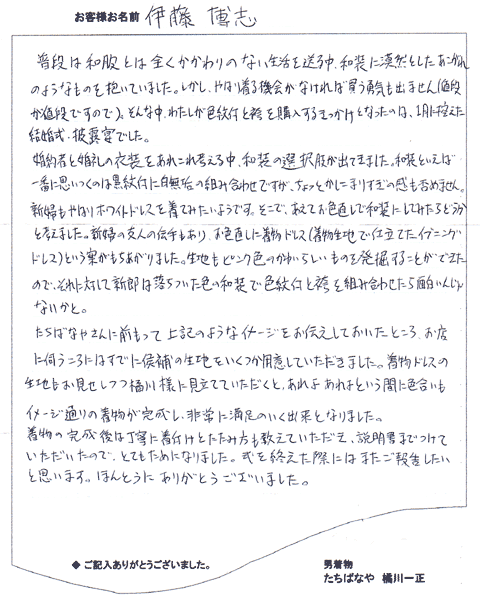 お客様お名前 伊藤 博志
普段は和服とは全くかかわりのない生活を送る中、和装に漠然としたあこがれ
のようなものを抱いていました。しかし、やはり着る機会がなければ買う勇気も出ません(値段
が値段ですので)。そんな中、わたしが色紋付と袴を購入するきっかけとなったのは、1月に控えた
結婚式・披露宴でした。
婚約者と婚礼の衣装をあれこれ考える中、和装の選択肢が出てきました。和装といえば
一番に思いつくのは黒紋付に白無垢の組み合わせですが、ちょっとかしこまりすぎの感も否めません。
新婦もやはりホワイトドレスを着てみたいようです。そこで、あえてお色直しで和装にしてみたらどうか
と考えました。新婦の友人の伝手もあり、お色直しに着物ドレス(着物生地で仕立てたイブニング
ドレス)という案がもちあがりました。生地もピンク色のかわいらしいものを発掘することができた
ので、それに対して新郎は落ちついた色の和装で色紋付と袴を組み合わせたら面白いんじゃ
ないかと。
たちばなやさんに前もって上記のようなイメージをお伝えしておいたところ、お店
に伺うころにはすでに候補の生地をいくつか用意していただきました。着物ドレスの
生地もお見せしつつ橘川様に見立てていただくと、あれよあれよという間に色合いも
イメージ通りの着物が完成し、非常に満足のいく出来となりました。
着物の完成後は丁寧に着付けとたたみ方も教えていただき、説明書までつけて
いただいたので、とてもためになりました。式を終えた際にはまたご報告したい
と思います。ほんとうにありがとうございました。
◆ ご記入ありがとうございました。
男着物
たちばなや 橘川一正